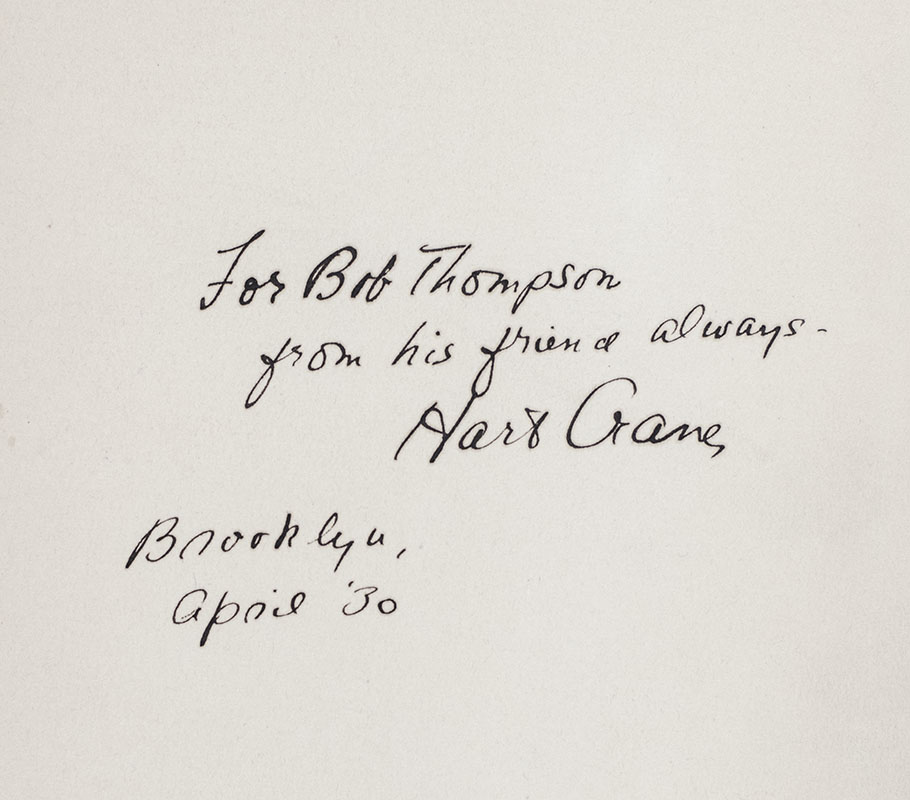 For Bob Thompson
from his friend always-
Hart Crane
Brooklyn,
April '30